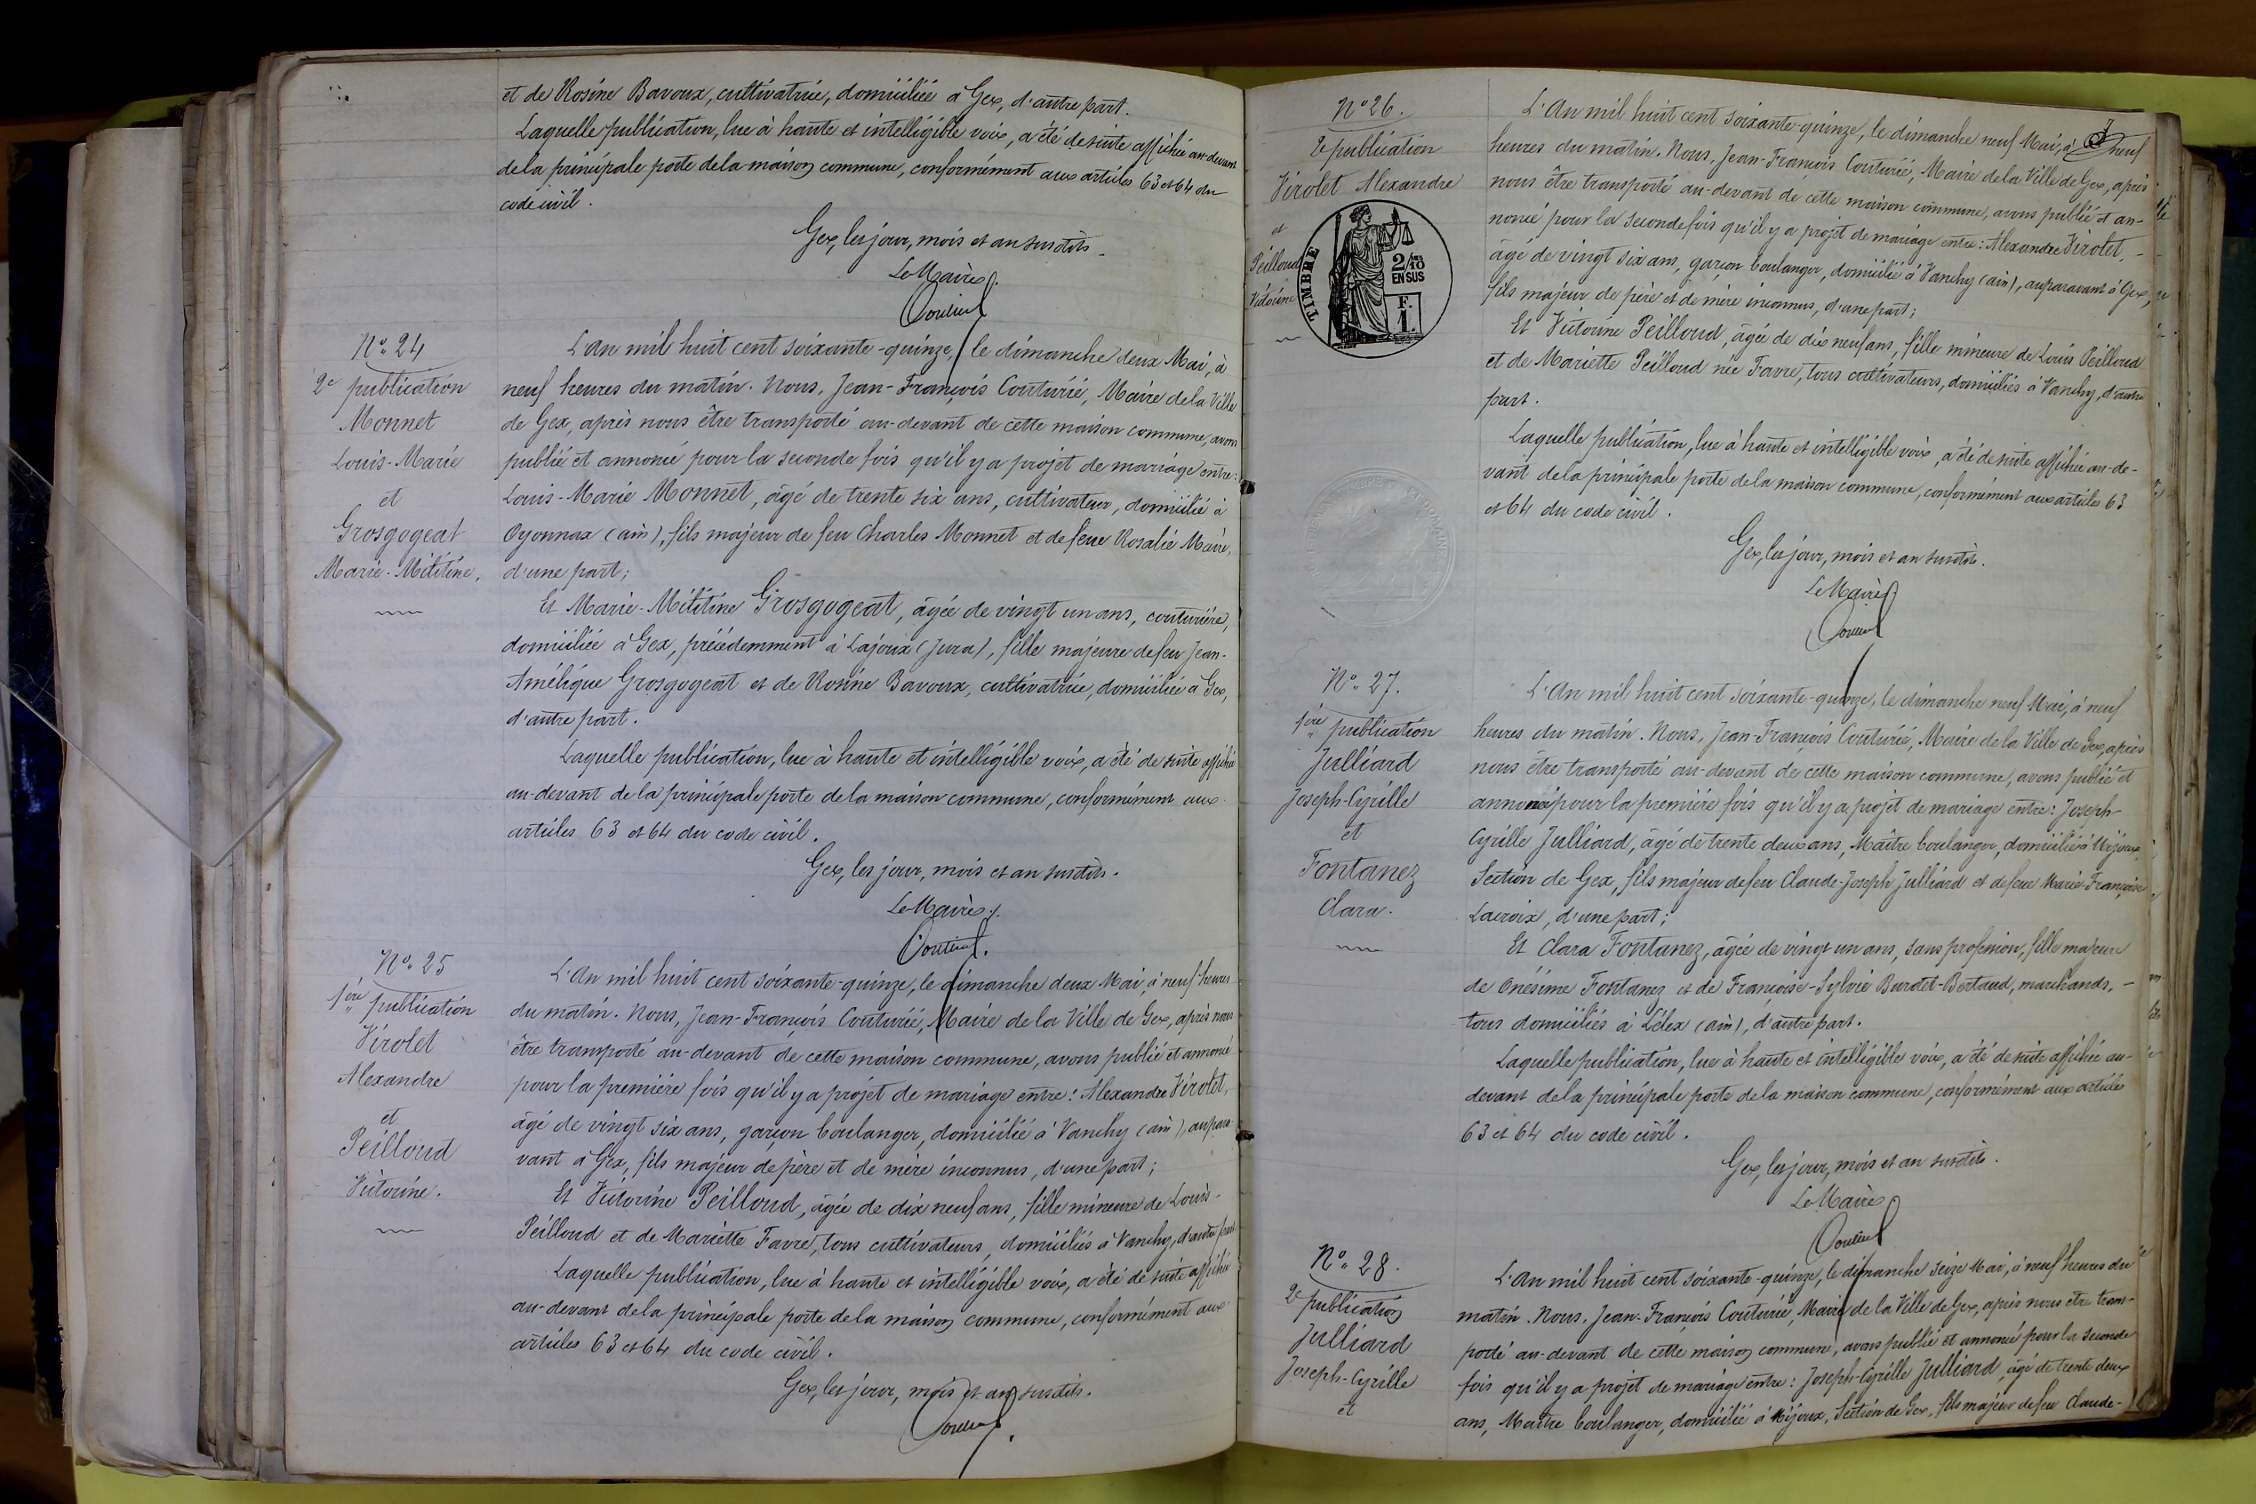 et de Rosine Bavoux, cultivatrice, domiciliée à Gex, d'autre part.
Laquelle publication, lue à haute et intelligible voix, a été de suite affichée au-devant
de la principale porte de la maison commune, conformément aux articles 63 et 64 du
code civil.
Gex, les jour, mois et an susdits.
Le Maire
N° 24
2e publication
Monnet
Louis-Marie
et
Grosgogeat
Marie-Mélitine.
L'An mil huit cent soixante-quinze, le dimanche deux Mai, à
neuf heures du matin. Nous, Jean-François Couturié, Maire de la Ville
de Gex, après nous être transporté au-devant de cette maison commune, avons
publié et annoncé pour la seconde fois qu'il y a projet de mariage entre:
Louis-Marie Monnet, âgé de trente six ans, cultivateur, domicilié à
Oyonnax (ain), fils majeur de feu Charles Monnet et de feue Rosalie Maire,
d'une part;
Et Marie-Mélitine Grosgogeat, âgée de vingt un ans, couturière,
domiciliée à Gex, précédemment à Lajoux (Jura), fille majeure de feu Jean-
Amélique Grosgogeat et de Rosine Bavoux, cultivatrice, domiciliée à Gex,
d'autre part.
Laquelle publication, lue à haute et intelligible voix, a été de suite affichée
au-devant de la principale porte de la maison commune, conformément aux
articles 63 et 64 du code civil.
Gex, les jour, mois et an susdits.
Le Maire
N° 25
1ère publication
Virolet
Alexandre
et
Peilloud
Victorine.
L'An mil huit cent soixante-quinze, le dimanche deux Mai, à neuf heures
du matin. Nous, Jean-François Couturié, Maire de la Ville de Gex, après nous
être transporté au-devant de cette maison commune, avons publié et annoncé
pour la première fois qu'il y a projet de mariage entre: Alexandre Virolet,
âgé de vingt six ans, garçon boulanger, domicilié à Vanchy (ain), aupara-
vant à Gex, fils majeur de père et de mère inconnus, d'une part;
Et Victorine Peilloud, âgée de dix neuf ans, fille mineure de Louis-
Peilloud et de Mariette Favre, tous cultivateurs, domiciliés à Vanchy, d'autre part
Laquelle publication, lue à haute et intelligible voix, a été de suite affichée
au-devant de la principale porte de la maison commune, conformément aux
articles 63 et 64 du code civil.
Gex, les jour, mois et an susdits.
N° 26.
2e publication
Virolet Alexandre
et
Peilloud
Victorine
TIMBRE
2/10
EN SUS
F.
1.
L'An mil huit cent soixante-quinze, le dimanche neuf Mai, à neuf
heures du matin. Nous, Jean-François Couturié, Maire de la Ville de Gex, après
nous être transporté au-devant de cette maison commune, avons publié et an-
noncé pour la seconde fois qu'il y a projet de mariage entre: Alexandre Virolet,
âgé de vingt six ans, garçon boulanger, domicilié à Vanchy (ain), auparavant à Gex,
fils majeur de père et de mère inconnus, d'une part;
Et Victorine Peilloud, âgée de dix neuf ans, fille mineure de Louis Peilloud
et de Mariette Peilloud née Favre, tous cultivateurs, domiciliés à Vanchy, d'autre
part.
Laquelle publication, lue à haute et intelligible voix, a été de suite affichée au-de-
vant de la principale porte de la maison commune, conformément aux articles 63
et 64 du code civil.
Gex, les jour, mois et an susdits.
Le Maire
N° 27.
1ère publication
Julliard
Joseph-Cyrille
et
Fontanez
Clara.
L'An mil huit cent soixante-quinze, le dimanche neuf Mai, à neuf
heures du matin. Nous, Jean-François Couturié, Maire de la Ville de Gex, après
nous être transporté au-devant de cette maison commune, avons publié et
annoncé pour la première fois qu'il y a projet de mariage entre: Joseph-
Cyrille Julliard, âgé de trente deux ans, Maître boulanger, domicilié à Mijoux,
Section de Gex, fils majeur de feu Claude-Joseph Julliard et de feue Marie-Françoise
Lacroix, d'une part;
Et Clara Fontanez, âgée de vingt un ans, sans profession, fille majeure
de Onésime Fontanez et de Françoise-Sylvie Burdet-Bertaud, marchands,
tous domiciliés à Lélex (ain), d'autre part.
Laquelle publication, lue à haute et intelligible voix, a été de suite affichée au-
devant de la principale porte de la maison commune, conformément aux articles
63 et 64 du code civil.
Gex, les jour, mois et an susdits.
Le Maire
N° 28.
2e publication
Julliard
Joseph-Cyrille
et
L'An mil huit cent soixante-quinze, le dimanche seize Mai, à neuf heures du
matin. Nous, Jean-François Couturié, Maire de la Ville de Gex, après nous être trans-
porté au-devant de cette maison commune, avons publié et annoncé pour la seconde
fois qu'il y a projet de mariage entre: Joseph-Cyrille Julliard, âgé de trente deux
ans, Maître boulanger, domicilié à Mijoux, Section de Gex, fils majeur de feu Claude-